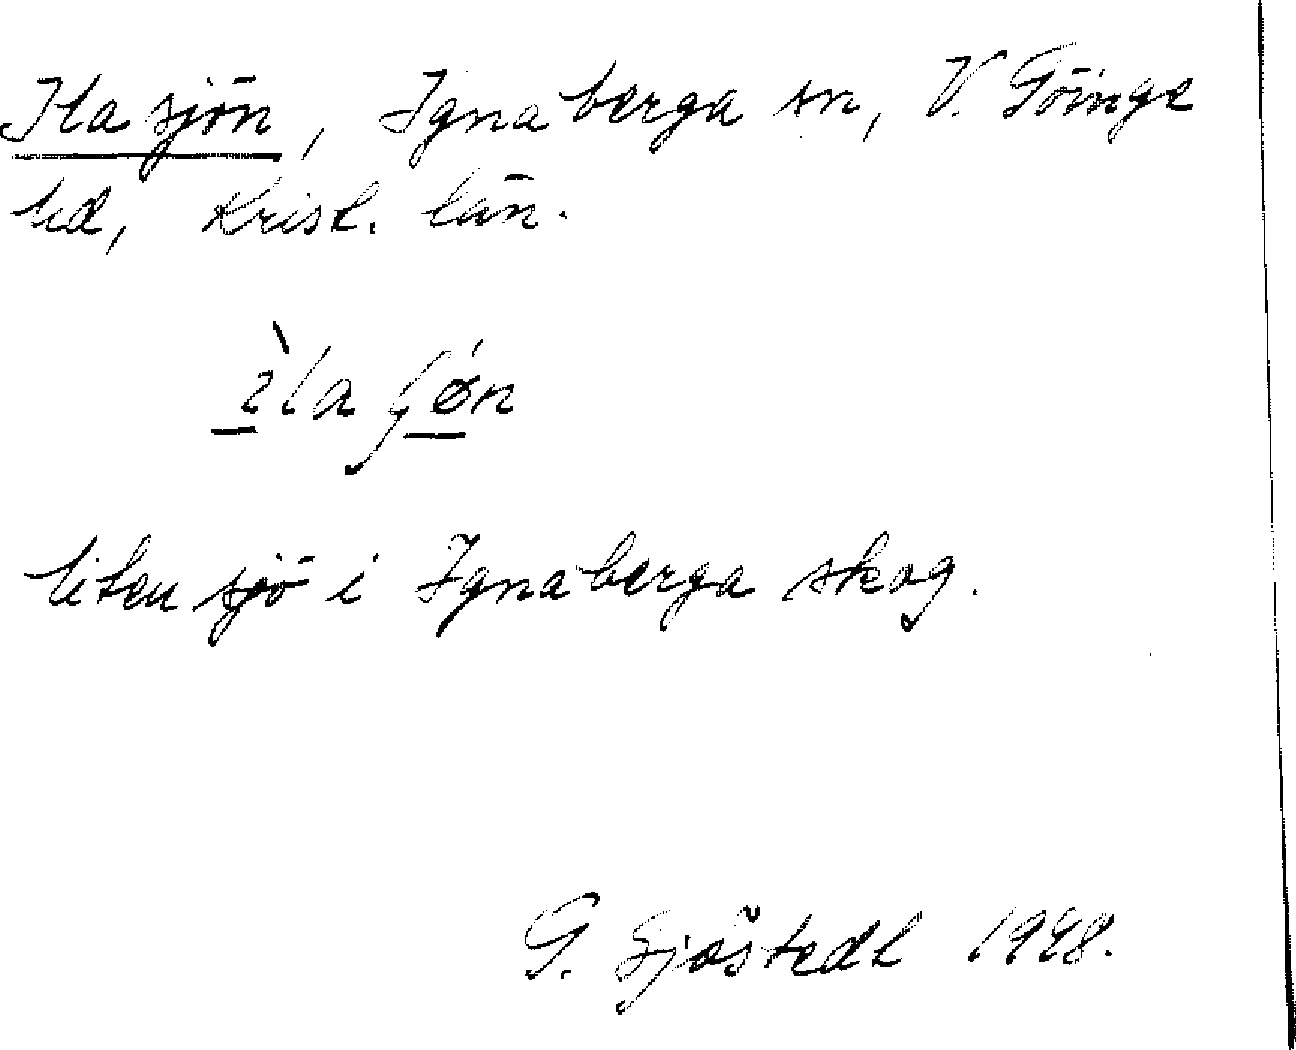 Ila sjön, Ignaberga sn, V. Göinge
hd, Krist. län.
ı̀la ʃǿn
liten sjö i Ignaberga skog.
G. Sjöstedt 1948.